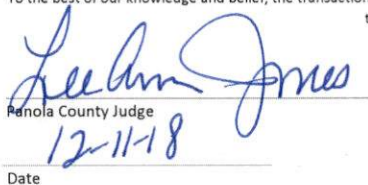 To the best of our knowledge and belief, the transaction
t
LeeAnn Jones
Panola County Judge
12-11-18
Date